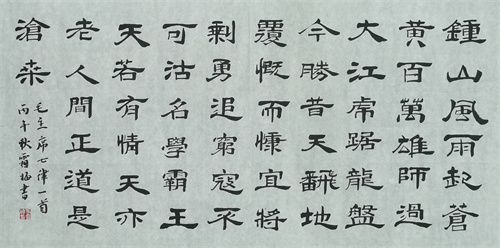 鍾山風雨起蒼
黃百萬雄師過
大江虎踞龍盤
今勝昔天飜地
覆慨而慷宜將
剩勇追窮寇不
可沽名學霸王
天若有情天亦
老人間正道是
滄桒
毛主席七律一首
丙午秋霜梅書